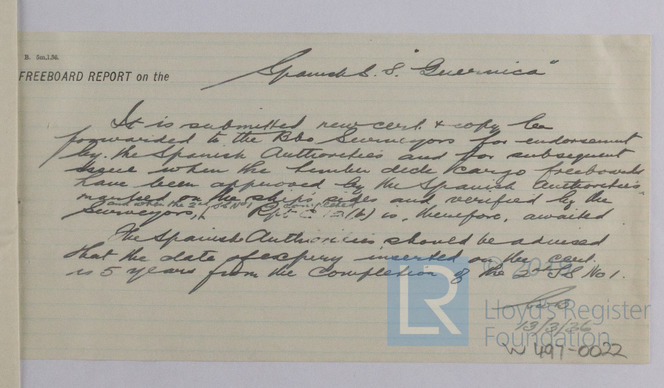 D. 5m,1,36.
FREEBOARD REPORT on the Spanish S. S. "Guernica"
It is submitted new cert. & copy be
forwarded to the Bbo Surveyors for endorsement
by the Spanish Authorities and for subsequent
issue when the timber deck cargo freeboards
have been approved by the Spanish Authorities
marked on the ship's sides and verified by the
and when the 2nd SS No1 is completed
Surveyors, Rpt C 12(b) is, therefore, awaited
The Spanish Authorities should be advised
that the date of expiry inserted on the cert.
is 5 years from the completion of the 2nd SS No 1.
13/3/36
Lloyd's Register
Foundation
W 497-0022
LR